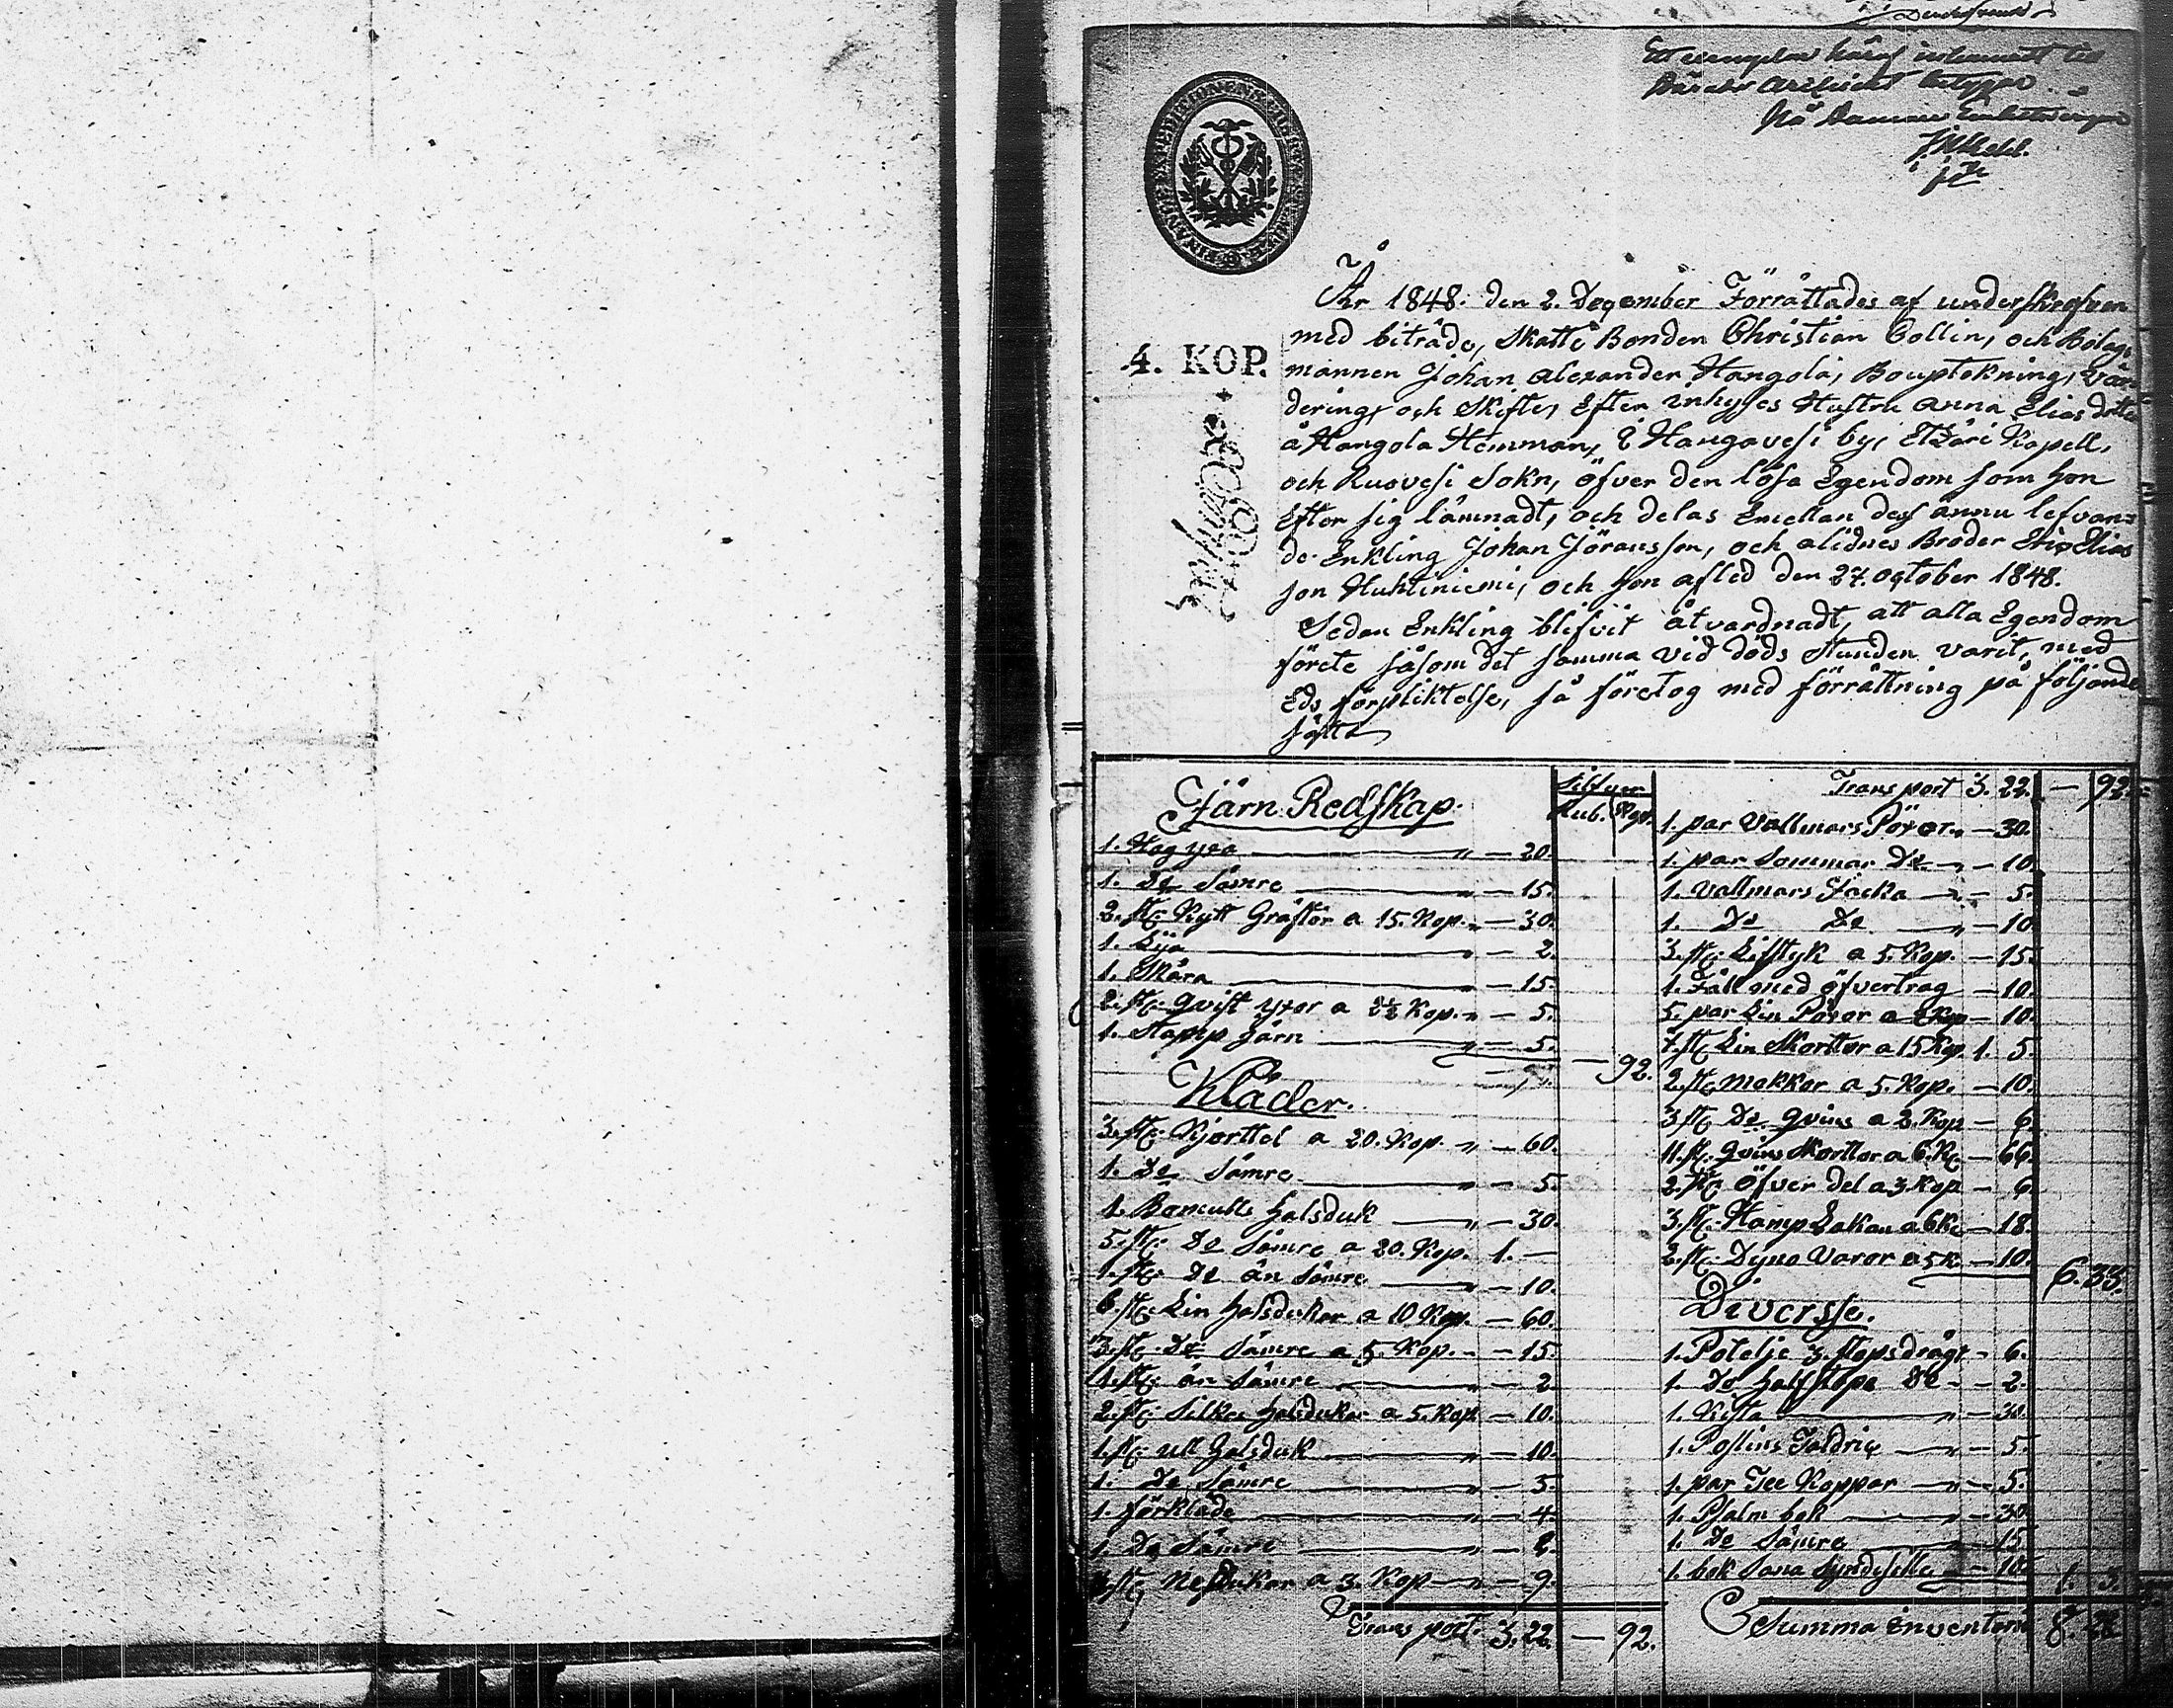 År 1848. den 2. Deqember Förråttades af underskrefven
med biträde, Skatte Bonden Christian Collin, och Bolags
4. KOP.
mannen Johan Alexander Hangola, Bouptekning, Vär
dering, och Skifte, Efter inhyses Hustru Anna Elias dotte
å Hangola Hemman, i Haugavesi by, Etsäri Kapell,
och Ruovesi Sokn, öfver den lösa Egendom som hon
Efter sig lämnadt, och delas Emellan des ännu lefvan=
de Enkling Johan Jöransson, och Broder Elias
son Huhtiniemi, och hon afled den 27. ogtober 1848.
Sedan Enkling blifvit åtvardnadt, att alla Egendom
förete såsom det samma vid döds Stunden varit, med
Eds förpliktelse, så företog med förråttning på följande
sått
Järn Redskap.
Silfver
Rub. Kop.
1. Hog yxa " — 20.
1. De Sämre " — 15.
2. st: Kytt Gräftor a 15. Kop. " — 30.
1. Lija " — 2.
1. Skära " — 15.
2. st: qvist yxor a 2½ Kop. " — 5.
1. Stamp Järn " — 5.
— 92.
Kläder.
3. st: Kjorttel a 20. Kop. " — 60.
1. De Sämre " — 5.
1. Bomulls halsduk " — 30.
5. st: De Sämre a 20. Kop. 1. —
1. st: De än Sämre — 10.
6. st: Lin halsdukar a 10 Kop. — 60.
3. st: De Sämre a 5. Kop. — 15.
1. st: än Sämre — 2.
2. st: Silkes halsdukar a 5. Kop — 10.
1. st: ull halsduk — 10.
1. De Sämre — 5.
1. förkläde — 4.
1. De Sämre
3. st: Nesdukar a 3. Kop " — 9.
Trans port. 3. 22. — 92.
Trans port 3. 22. — 92.
1. par Vallmars Pöxor " — 30.
1. par Sommar De " — 10.
1. Vallmars Jacka " — 5.
1. De De " — 10.
3. st: Lifstyk a 5. Kop. — 15.
1. Fäll med öfvertrag — 10.
5. par Lin Påsar a 2 Kop — 10.
7. st: Lin Skorttor a 15 Kop 1. 5.
2. st: Mekkor a 5. Kop. — 10.
3. st: De qvins a 2. Kop — 6.
11. st: qvins Skorttor a 6. K: — 66.
2. st: öfver del a 3. Kop — 6.
3. st: Stamp Lakan a 6 K: — 18.
2. st: Dyno Varor a 5 K — 10.
6. 35.
Diversse.
1. Potelje 3. stops drägt — 6.
1. De half stops De — 2.
1. Kista " — 30.
1. Poslins Taldrik " — 5.
1. par Tee Koppar " — 5.
1. Psalm bok — 30
1. De Sämre — 15
1. bok Sana — 10
1. 3.
Summa inventarii 8.